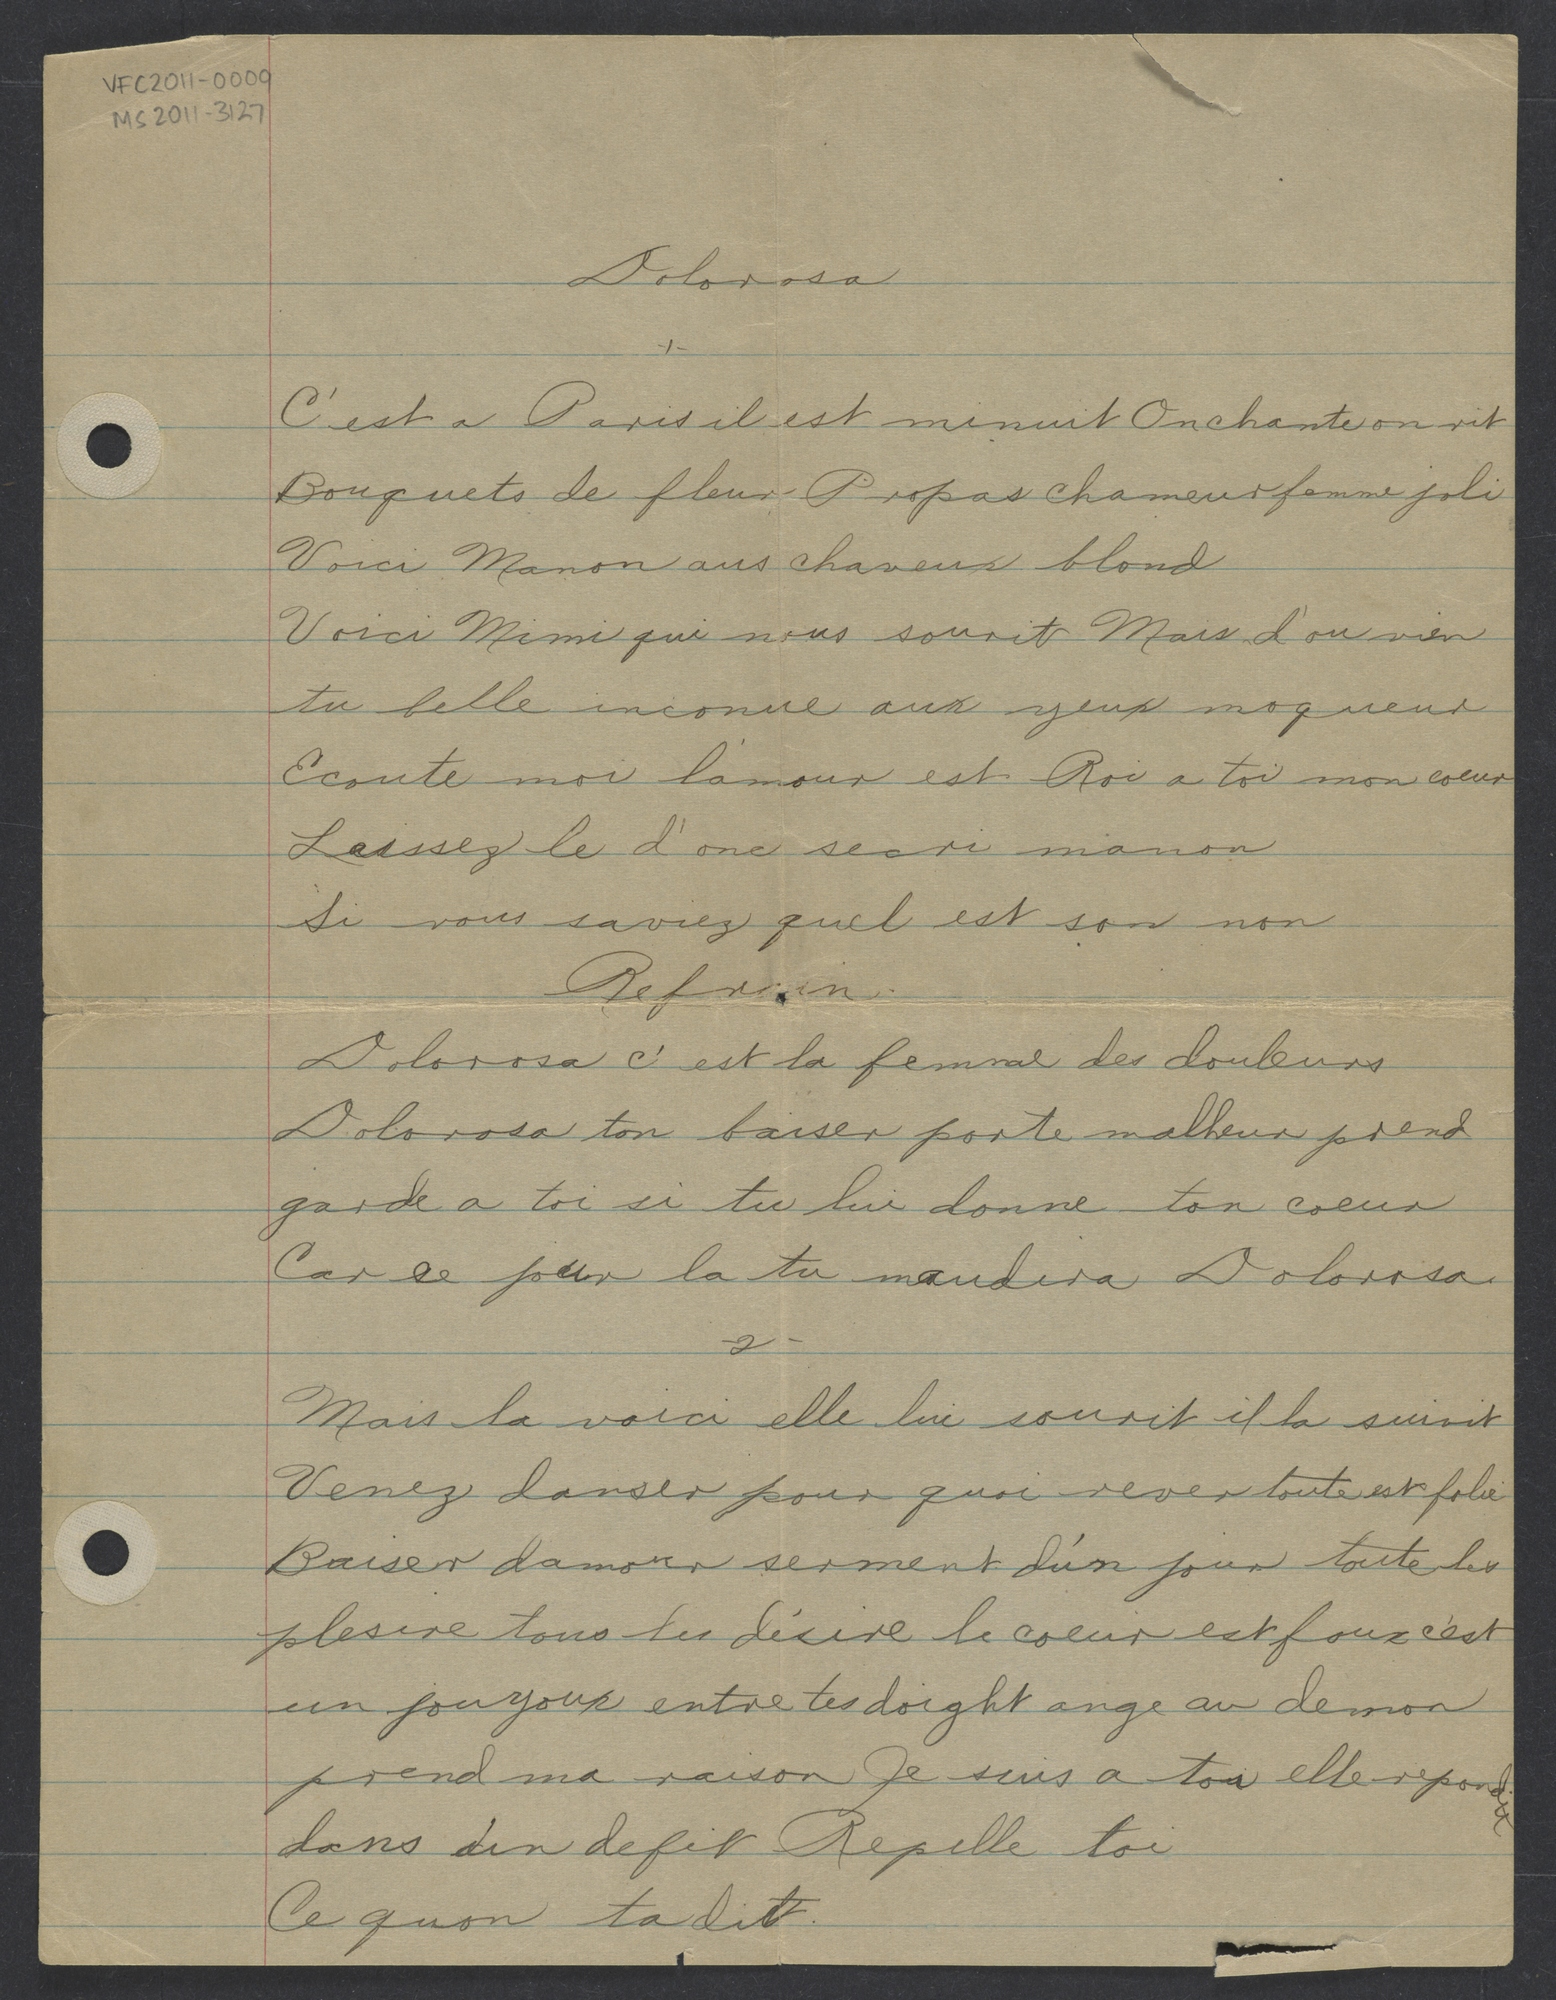 VFC2011-0009
MS2011-3127
Dolorosa
-1-
C'est a Paris il est minuit On chante on rit
Bouquets de fleur Propas chameur femme joli
Voici Manon aus chaveux blond
Voici Mimi qui nous sourit Mais d'ou vien
tu belle inconue aux yeux moqueur
Ecoute moi l'amour est Roi a toi mon coeur
Laissez le d'onc secri manon
Si vous saviez quel est son non
Refrain
Dolorosa c'est la femme des douleurs
Dolorosa ton baiser porte malheur prend
garde a toi si tu lui donne ton coeur
Car se jour la tu maudira Dolorosa
-2-
Mais la voici elle lui sourit il la suivit
Venez danser pour quoi rever toute est folie
Baiser damour serment d'un jour toute les
plesire tous les désire le coeur est foux c'est
un jouyoux entre tes doight ange au demon
prend ma raison Je suis a toi elle repondit
dans un defit Repelle toi
Ce quon ta dit.